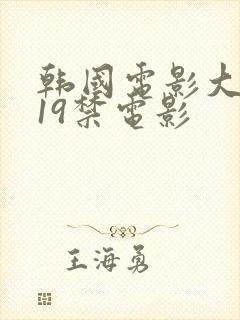 韩國電影大
19禁電影
王海勇